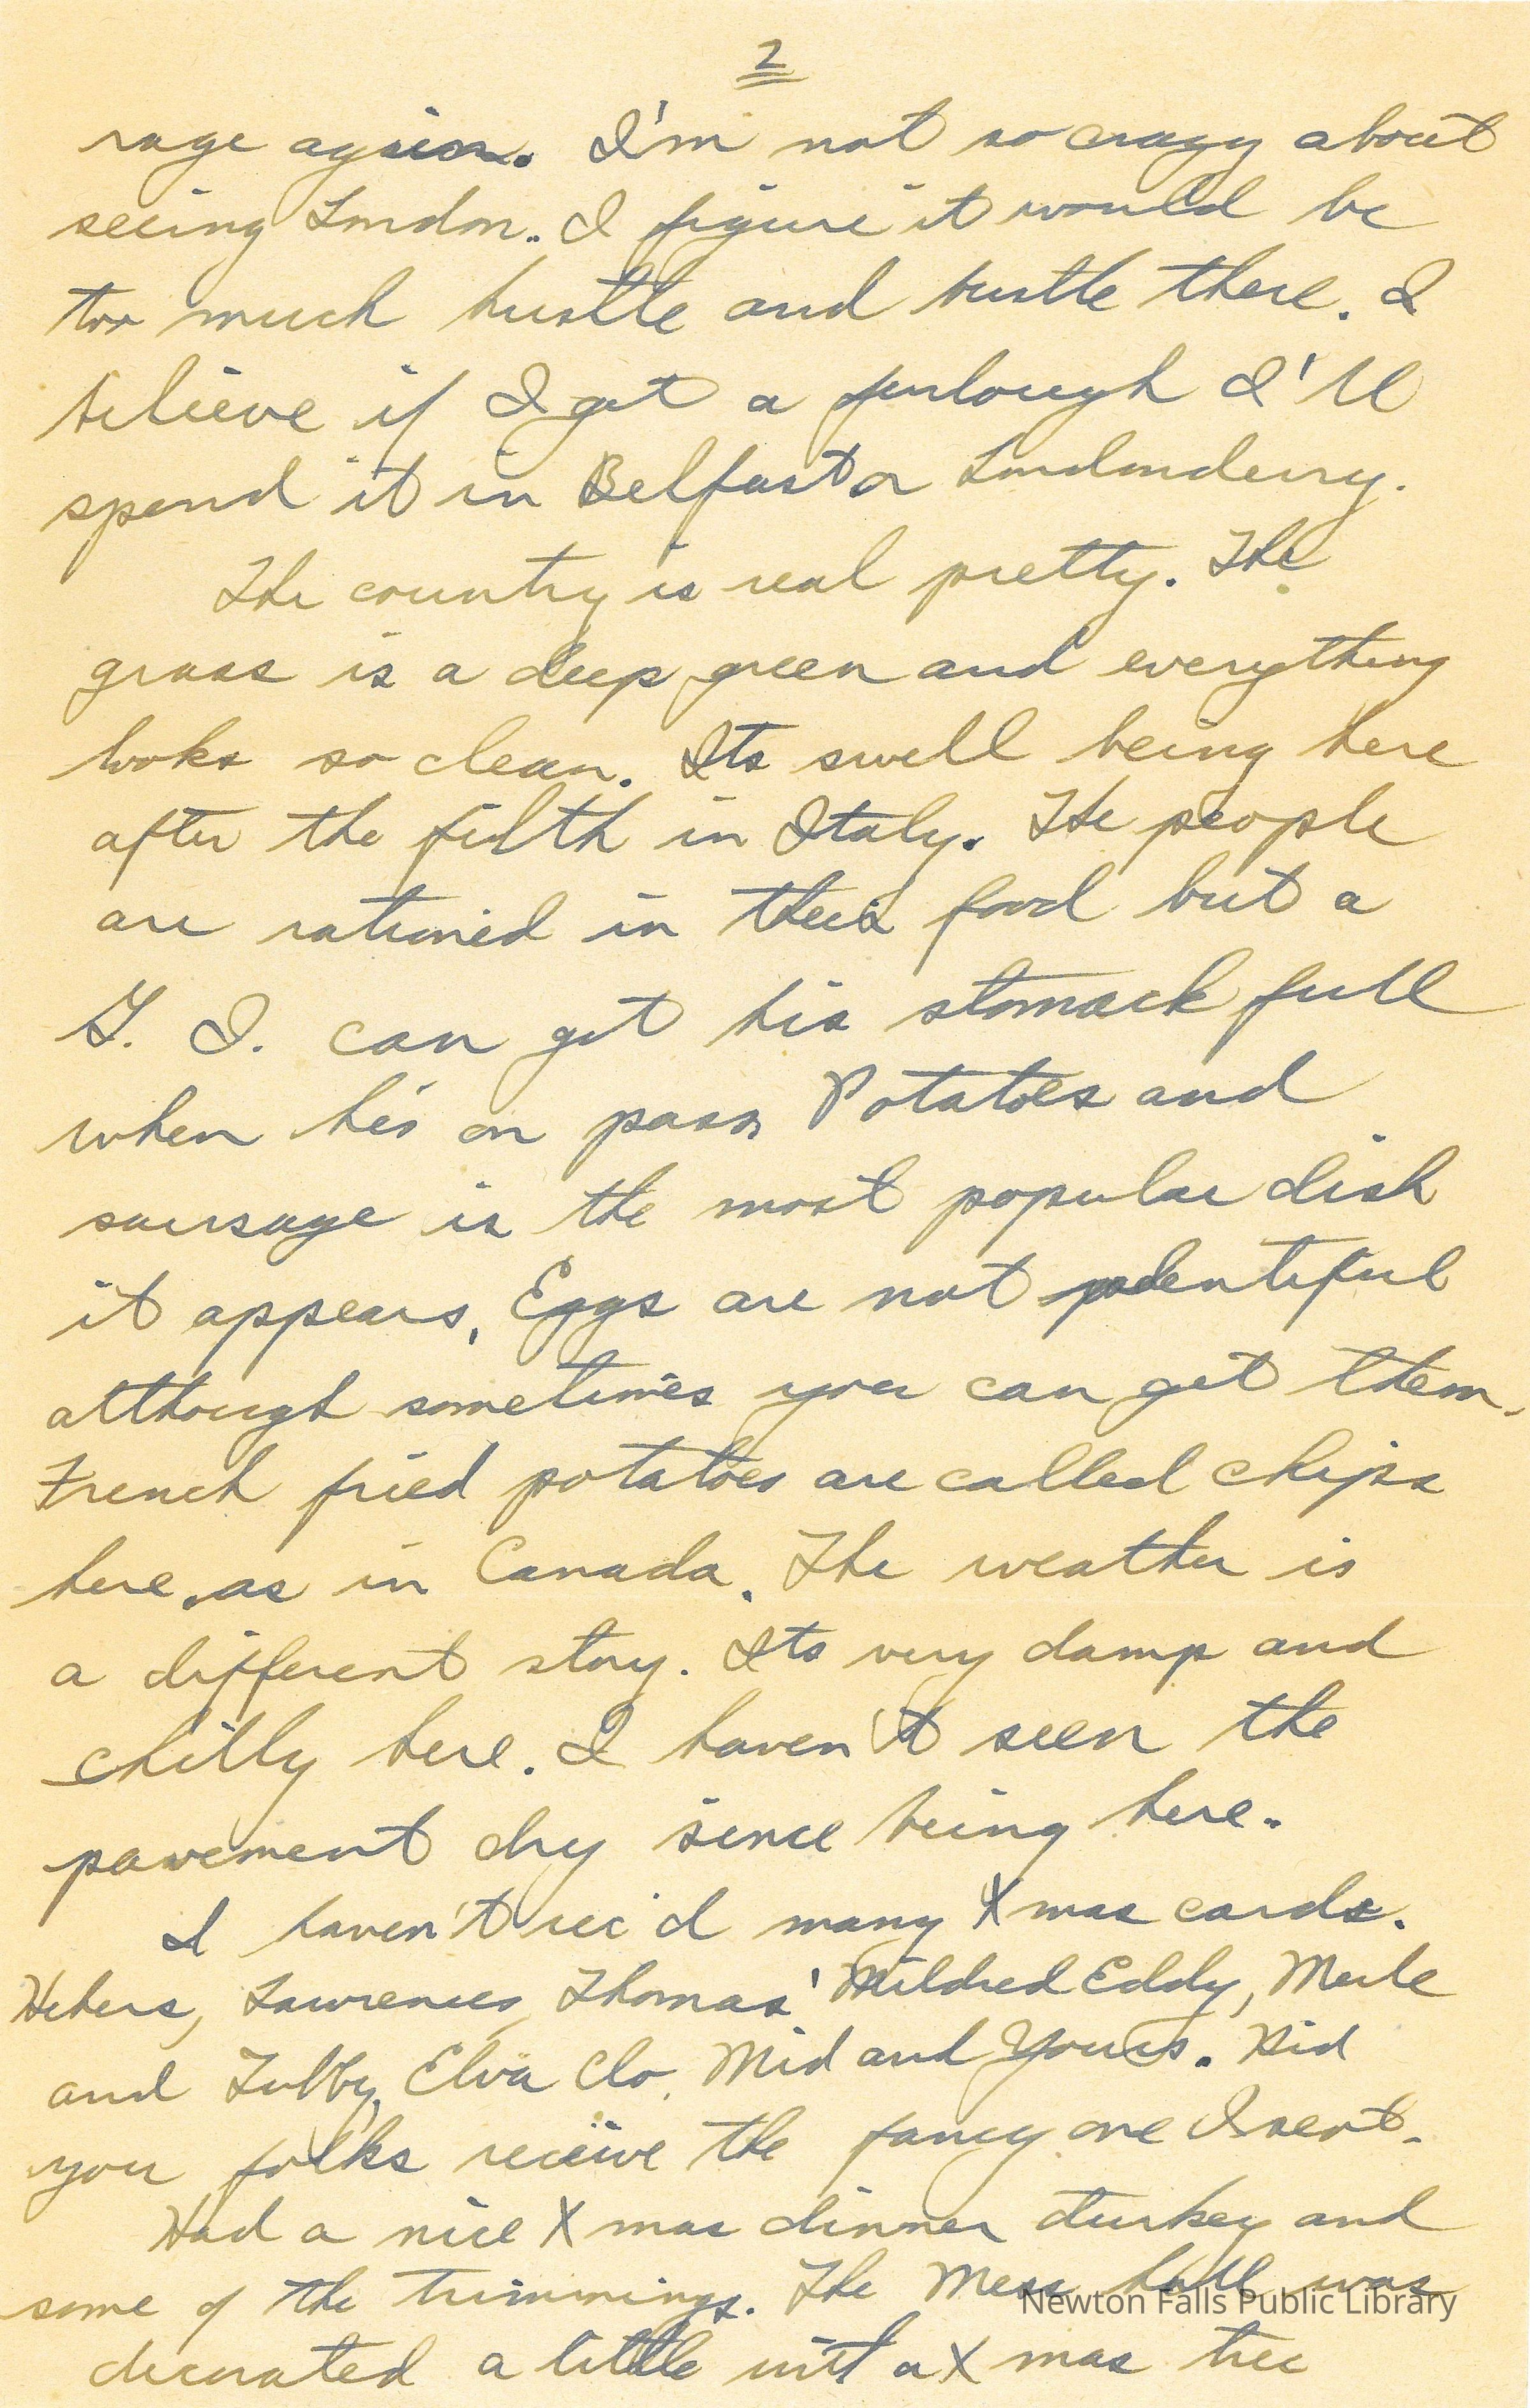 2
rage again. I'm not so crazy about
seeing London. I figure it would be
too much hustle and bustle there. I
believe if I get a furlough I'll
spend it in Belfast or Londonderry.
The country is real pretty. The
grass is a deep green and everything
looks so clean. Its swell being here
after the filth in Italy. The people
are rationed in their food but a
G. I. can get his stomack full
when he's on pass, Potatoes and
sausage is the most popular dish
it appears, Eggs are not plentiful
although sometimes you can get them.
French fried potatoes are called chips
here as in Canada. The weather is
a different story. Its very damp and
chilly here. I haven't seen the
pavement dry since being here.
I haven't rec'd many Xmas cards.
Hebers, Lawrences, Thomas' Mildred Eddy, Merle
and Tubby, Elva Clo, Mid and Yours. Did
you folks receive the fancy one I sent.
Had a nice Xmas dinner turkey and
some of the trimmings. The Mess hall was
Newton Falls Public Library
decorated a little with a Xmas tree